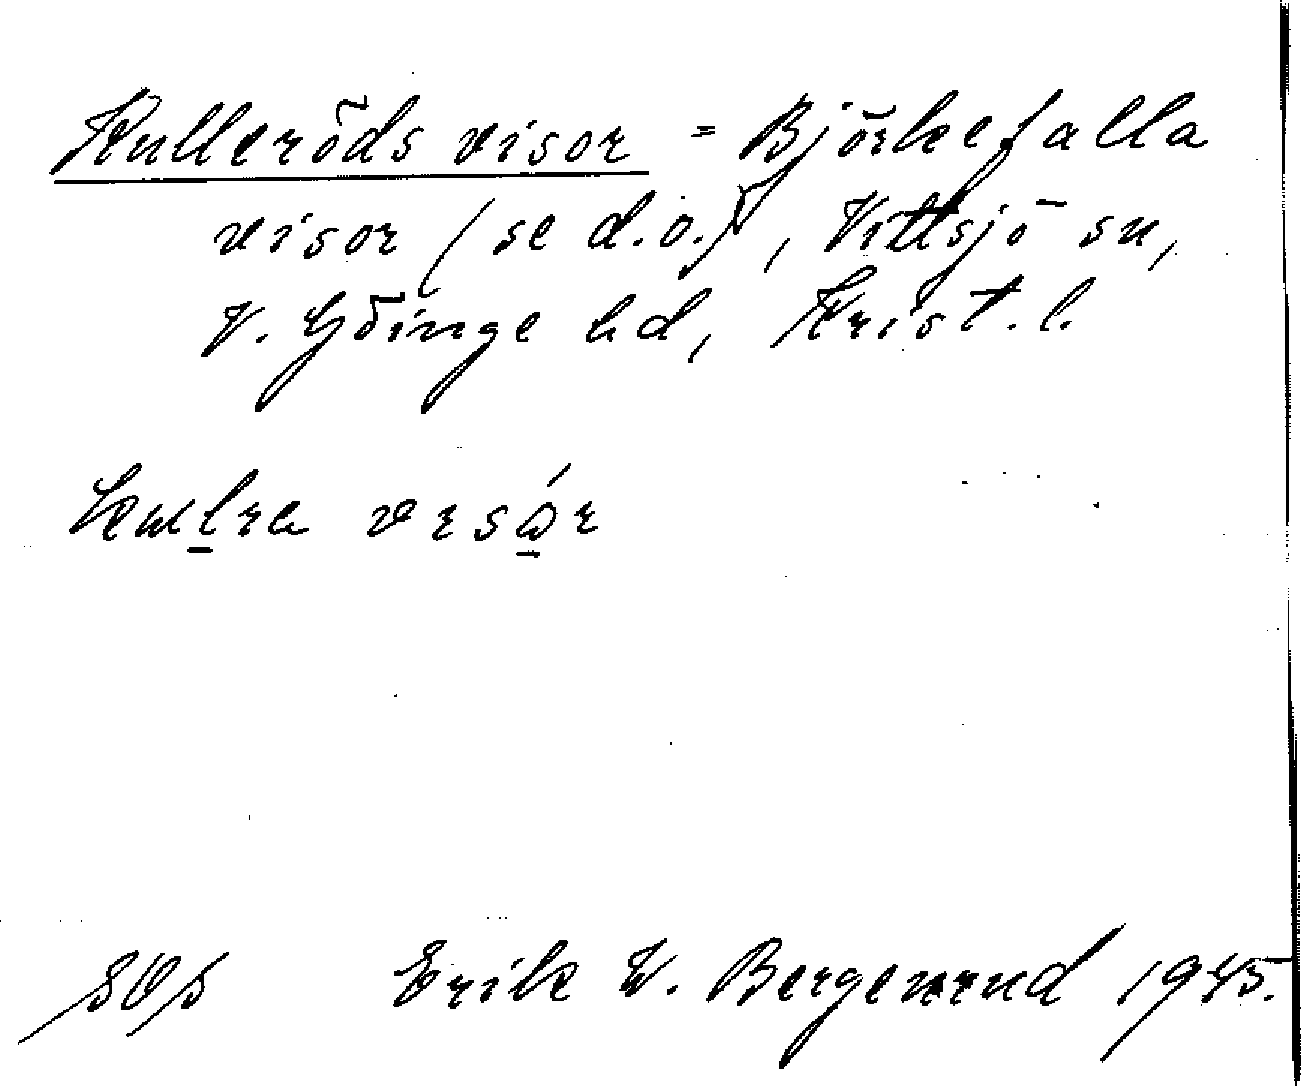 Kulleröds visor = Björkefalla
visor (se d.o.), Vittsjö sn,
V. Göinge hd, Krist. l.
visǫ́r
Erik W. Bergenrud 1945.